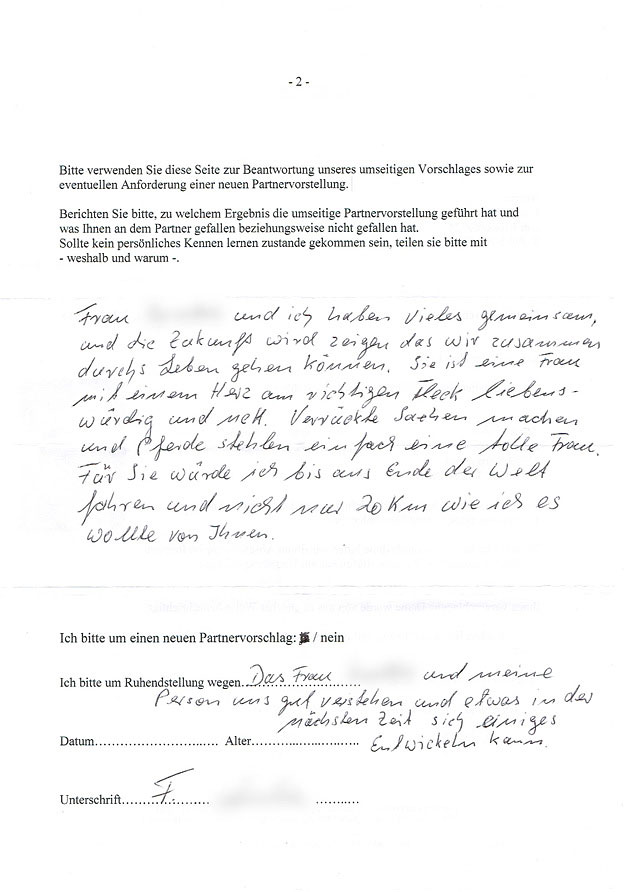 - 2 -
Bitte verwenden Sie diese Seite zur Beantwortung unseres umseitigen Vorschlages sowie zur
eventuellen Anforderung einer neuen Partnervorstellung.
Berichten Sie bitte, zu welchem Ergebnis die umseitige Partnervorstellung geführt hat und
was Ihnen an dem Partner gefallen beziehungsweise nicht gefallen hat.
Sollte kein persönliches Kennen lernen zustande gekommen sein, teilen sie bitte mit
- weshalb und warum -.
Frau und ich haben vieles gemeinsam,
und die Zukunft wird zeigen das wir zusammen
durchs Leben gehen können. Sie ist eine Frau
mit einem Herz am richtigen Fleck liebens-
würdig und nett. Verrückte Sachen machen
und Pferde stehlen einfach eine tolle Frau.
Für Sie würde ich bis ans Ende der Welt
fahren und nicht nur 20 Km wie ich es
wollte von Ihnen.
Ich bitte um einen neuen Partnervorschlag: / nein
Ich bitte um Ruhendstellung wegen Das Frau und meine
Person uns gut verstehen und etwas in der
nächsten Zeit sich einiges
Datum............................ Alter............................ Entwickeln kann.
Unterschrift.......... F. ..........